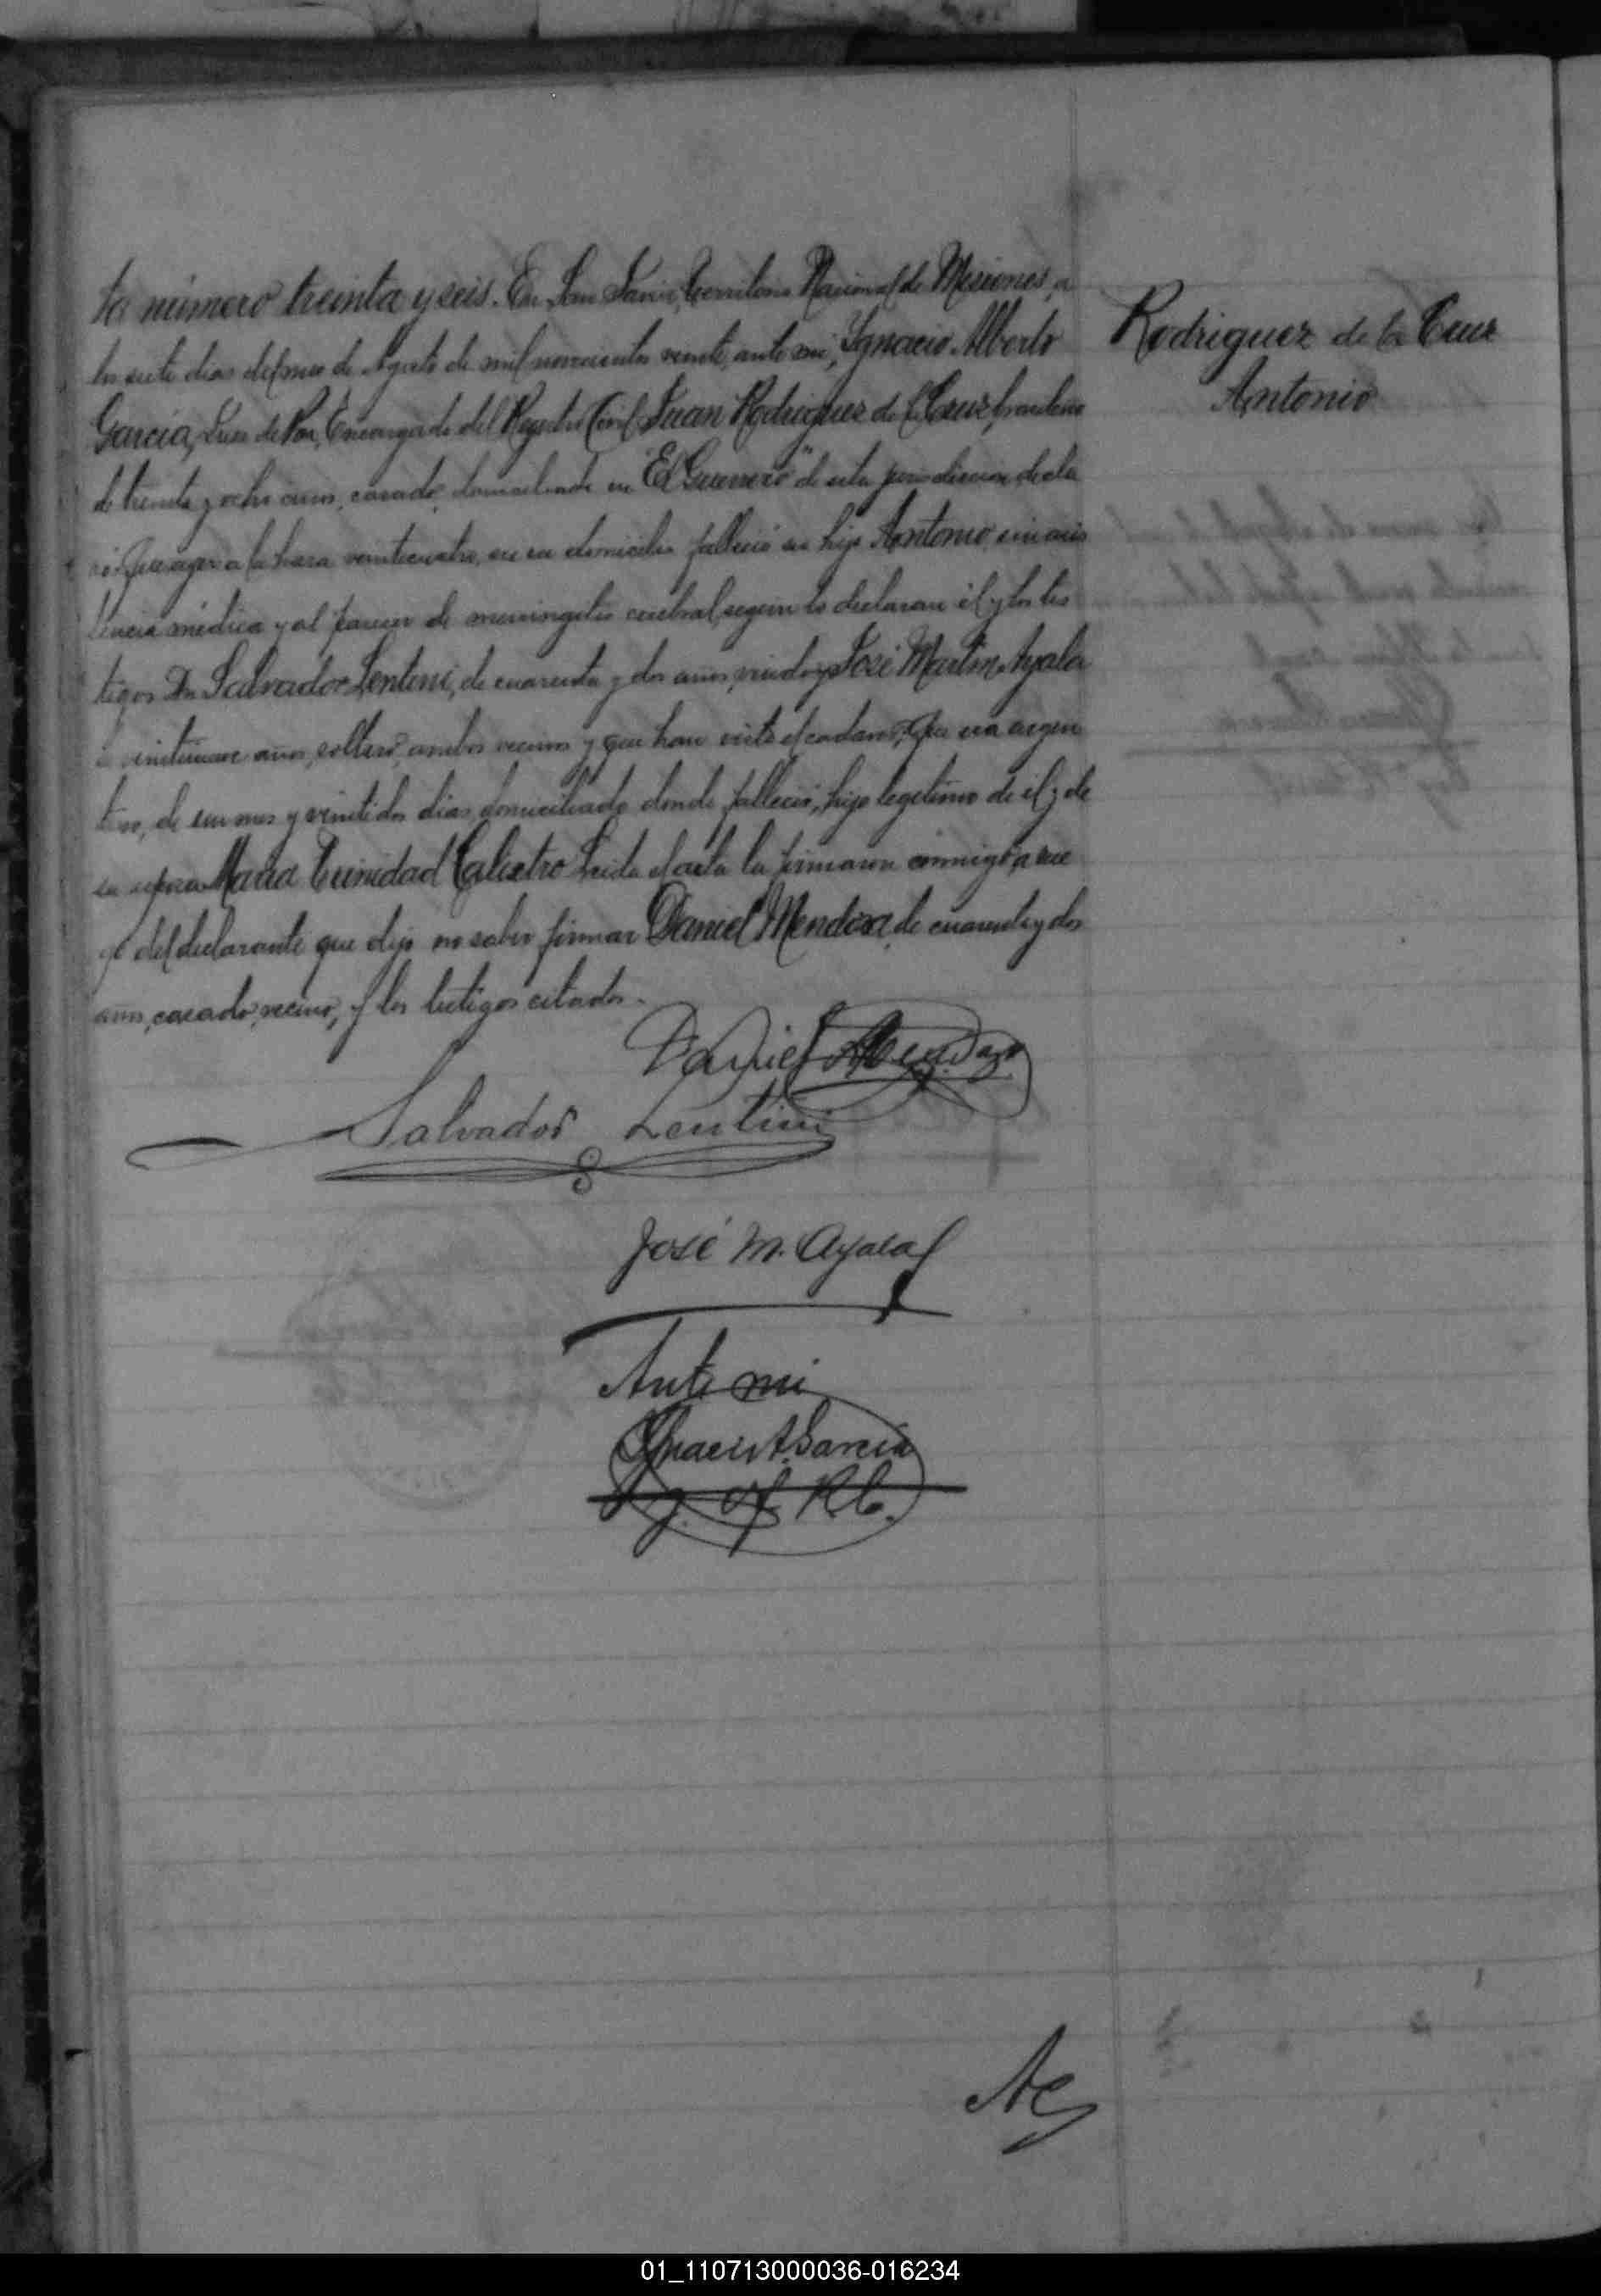 ta número treinta y seis. En San Javier, Territorio Nacional de Misiones, a
los siete dias del mes de Agosto de mil novecientos veinte, ante mi, Ignacio Alberto
Garcia, Juez de Paz, Encargado del Registro Civil, Juan Rodriguez de la Cruz, brasileno
de treinta y ocho años, casado, domiciliado en "El Guerrero" de esta jurisdiccion, decla
ró: Que ayer a la hora veinticuatro, en su domicilio fallecio su hijo Antonio, sin asis
tencia médica y al parecer de meningitis cerebral, segun lo declaran él y los tes
tigos Dn Salvador Lentini, de cuarenta y dos años, viudo y José Martin Ayala
de veintinueve años, soltero, ambos vecinos y que han visto el cadaver; Que era argen
tino, de un mes y veintidos dias, domiciliado donde falleció, hijo legitimo de él y de
su esposa Maria Trinidad Calixtro. Leida el acta la firmaron conmigo, a rue
go del declarante que dijo no saber firmar Daniel Mendoza, de cuarenta y dos
años, casado, vecino, y los testigos citados.
Daniel Mendoza
Salvador Lentini
José M. Ayala
Ante mi
Ignacio A. Garcia
Of. R.C.
Rodriguez de la Cruz
Antonio
01_110713000036-016234